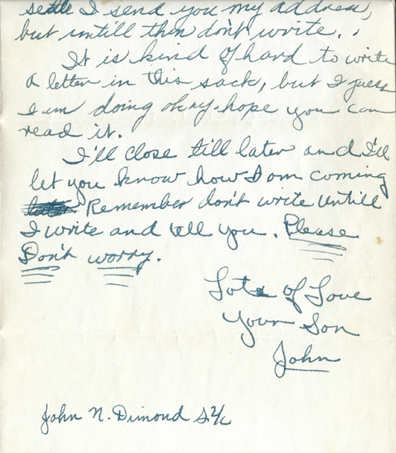 I send you my address,
but untill then don't write.
It is kind of hard to write
a letter in this sack, but I guess
I am doing okay. hope you can
read it.
I'll close till later and I'll
let you know how I am coming
Remember don't write untill
I write and tell you. Please
Don't worry.
Lots of Love
Your Son
John
John N. Dimond S2/c